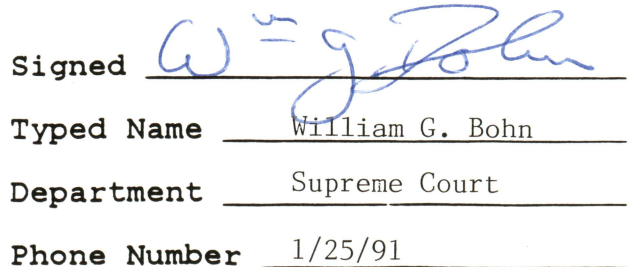 Signed Wm G Bohn
Typed Name William G. Bohn
Department Supreme Court
Phone Number 1/25/91